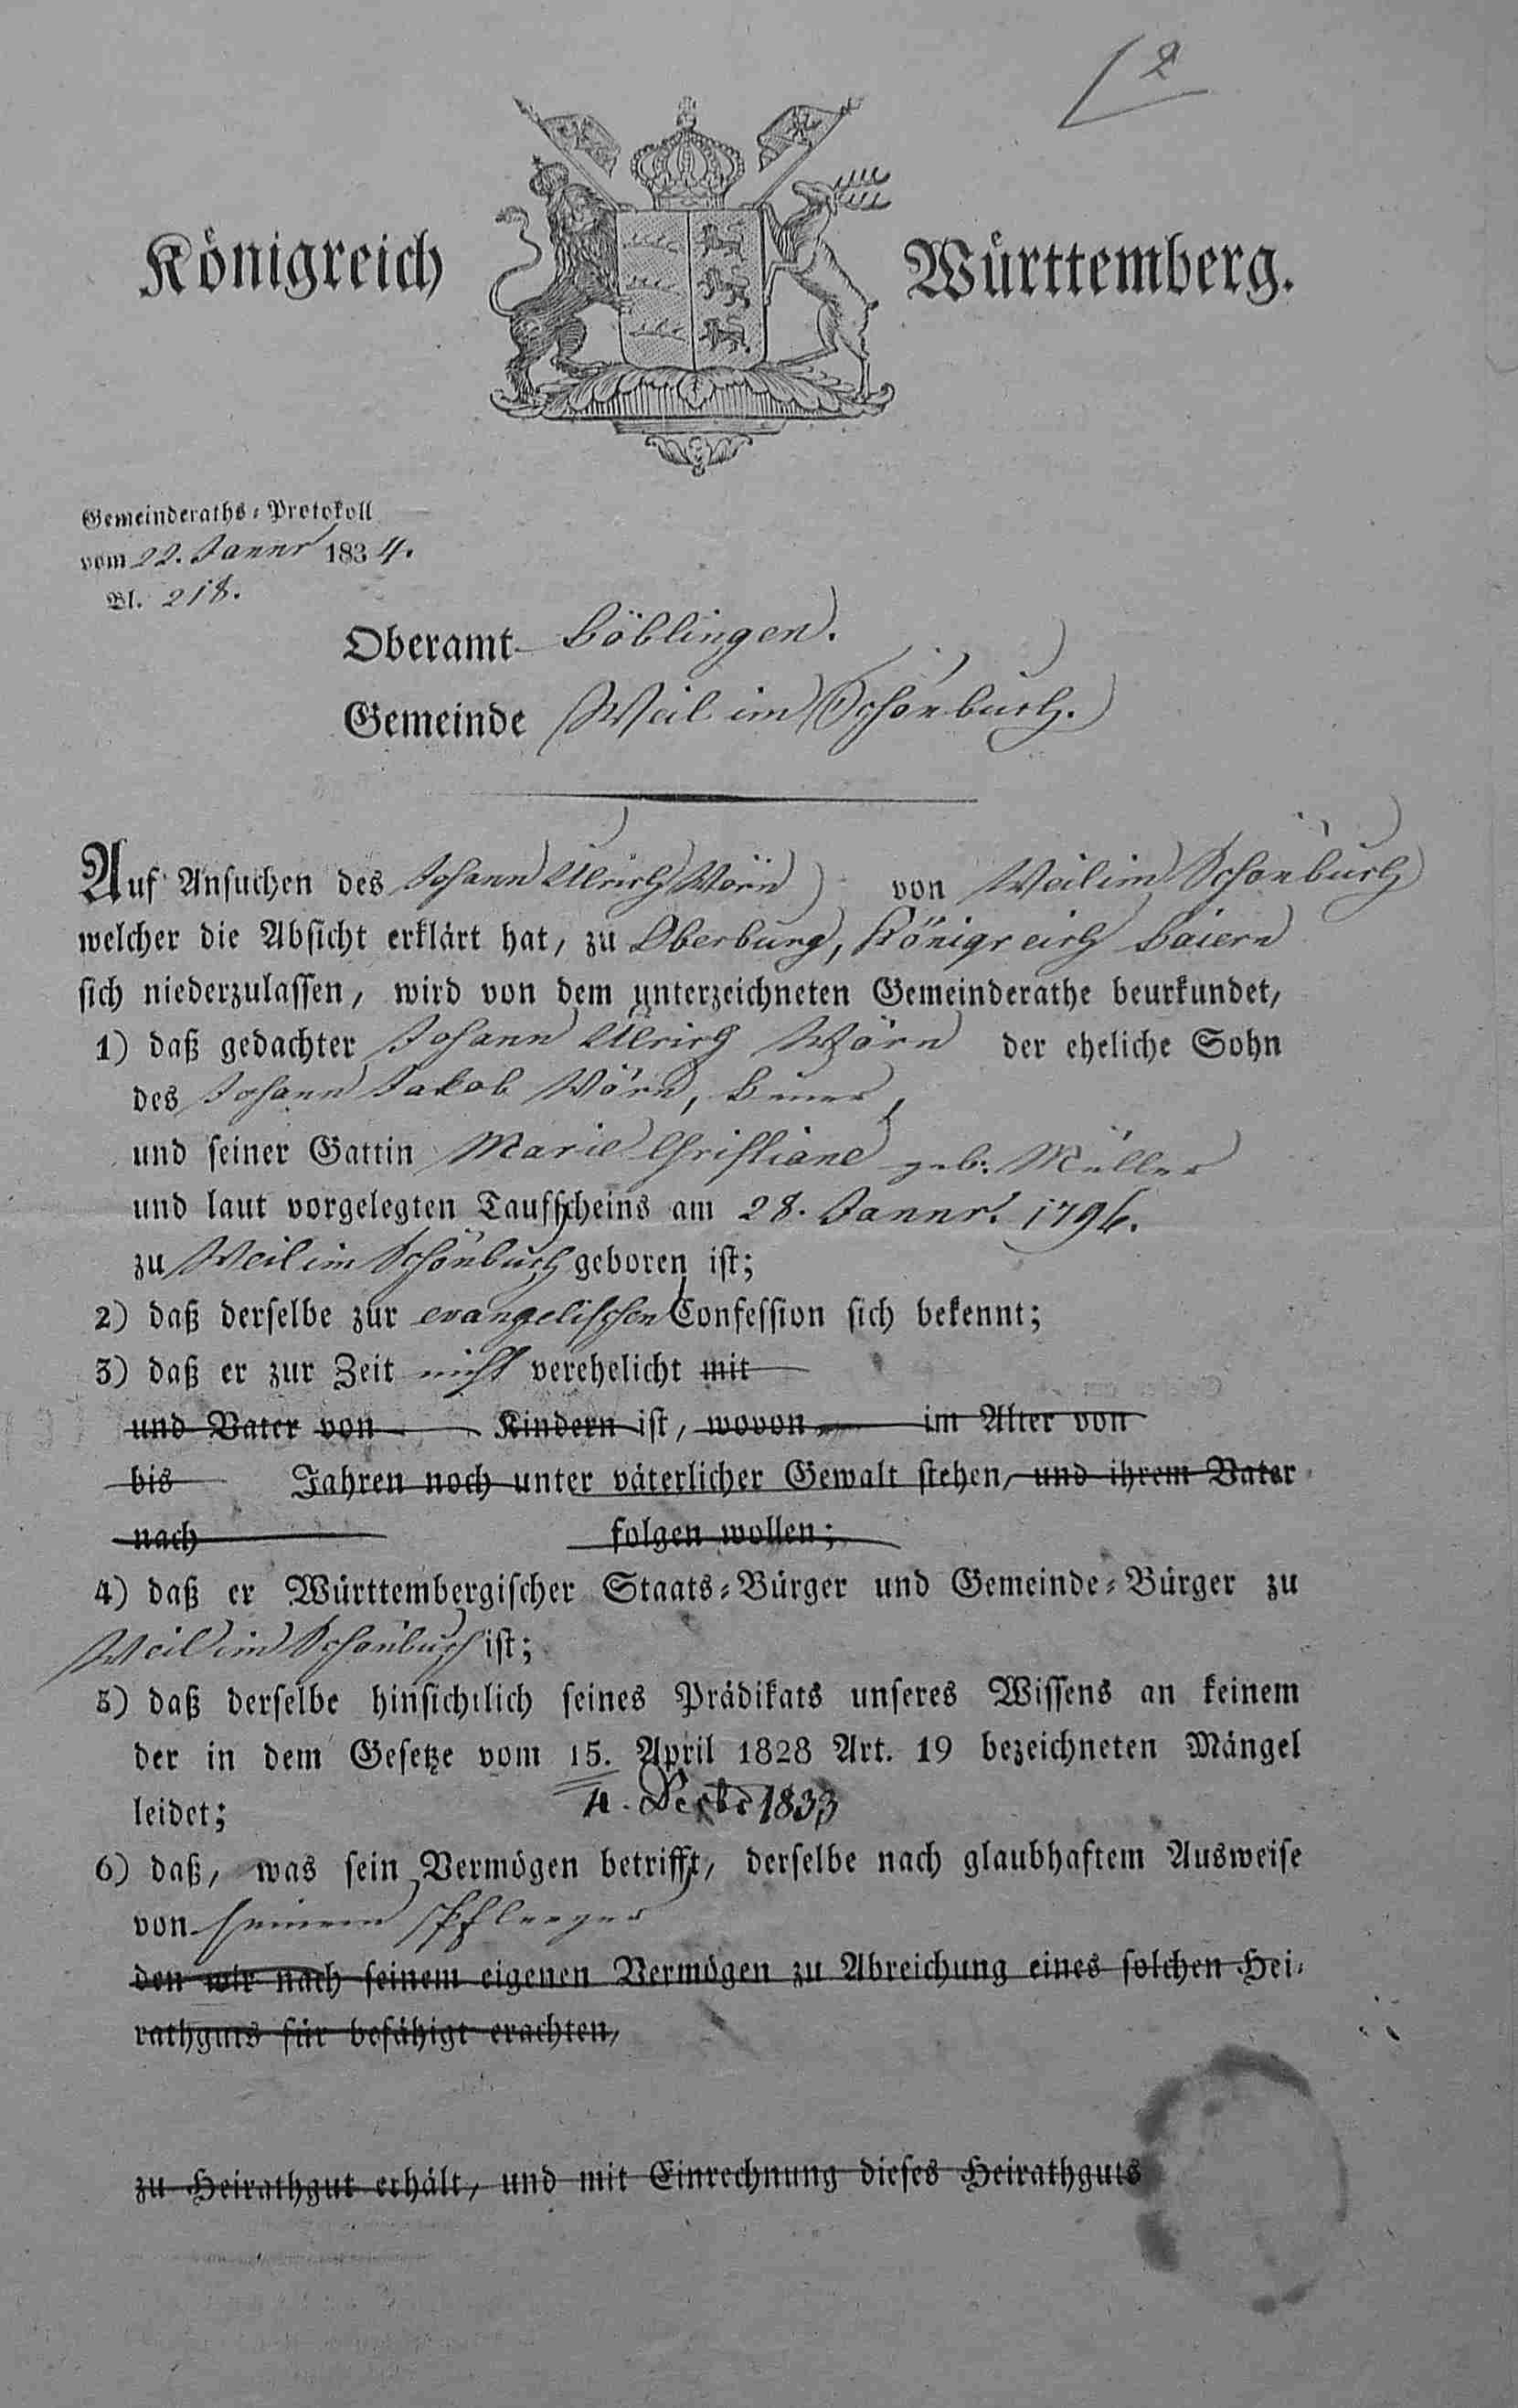 2
Königreich Württemberg.
Gemeinderaths-Protokoll
vom 22. Jannr 1834.
Bl. 218.
Oberamt Böblingen.
Gemeinde Weil im Schönbuch.
Auf Ansuchen des Johann Ulrich Wörn von Weil im Schönbuch
welcher die Absicht erklärt hat, zu Oberburg, Königreich Baiern
sich niederzulassen, wird von dem unterzeichneten Gemeinderathe beurkundet,
1) daß gedachter Johann Ulrich Wörn der eheliche Sohn
des Johann Jakob Wörn,
und seiner Gattin Marie Christiane geb. Müller
und laut vorgelegten Taufscheins am 28. Jannr. 1796.
zu Weil im Schönbuch geboren ist;
2) daß derselbe zur evangelischen Confession sich bekennt;
3) daß er zur Zeit nicht verehelicht mit
und Vater von Kindern ist, wovon im Alter von
bis Jahren noch unter väterlicher Gewalt stehen, und ihrem Vater
nach folgen wollen;
4) daß er Württembergischer Staats-Bürger und Gemeinde-Bürger zu
Weil im Schönbuch ist;
5) daß derselbe hinsichtlich seines Prädikats unseres Wissens an keinem
der in dem Gesetze vom 15. April 1828 Art. 19 bezeichneten Mängel
4. Decbr 1833
leidet;
6) daß, was sein Vermögen betrifft, derselbe nach glaubhaftem Ausweise
von seinem Pfleeger
den wir nach seinem eigenen Vermögen zu Abreichung eines solchen Hei-
rathguts für befähigt erachten,
zu Heirathgut erhält, und mit Einrechnung dieses Heirathguts